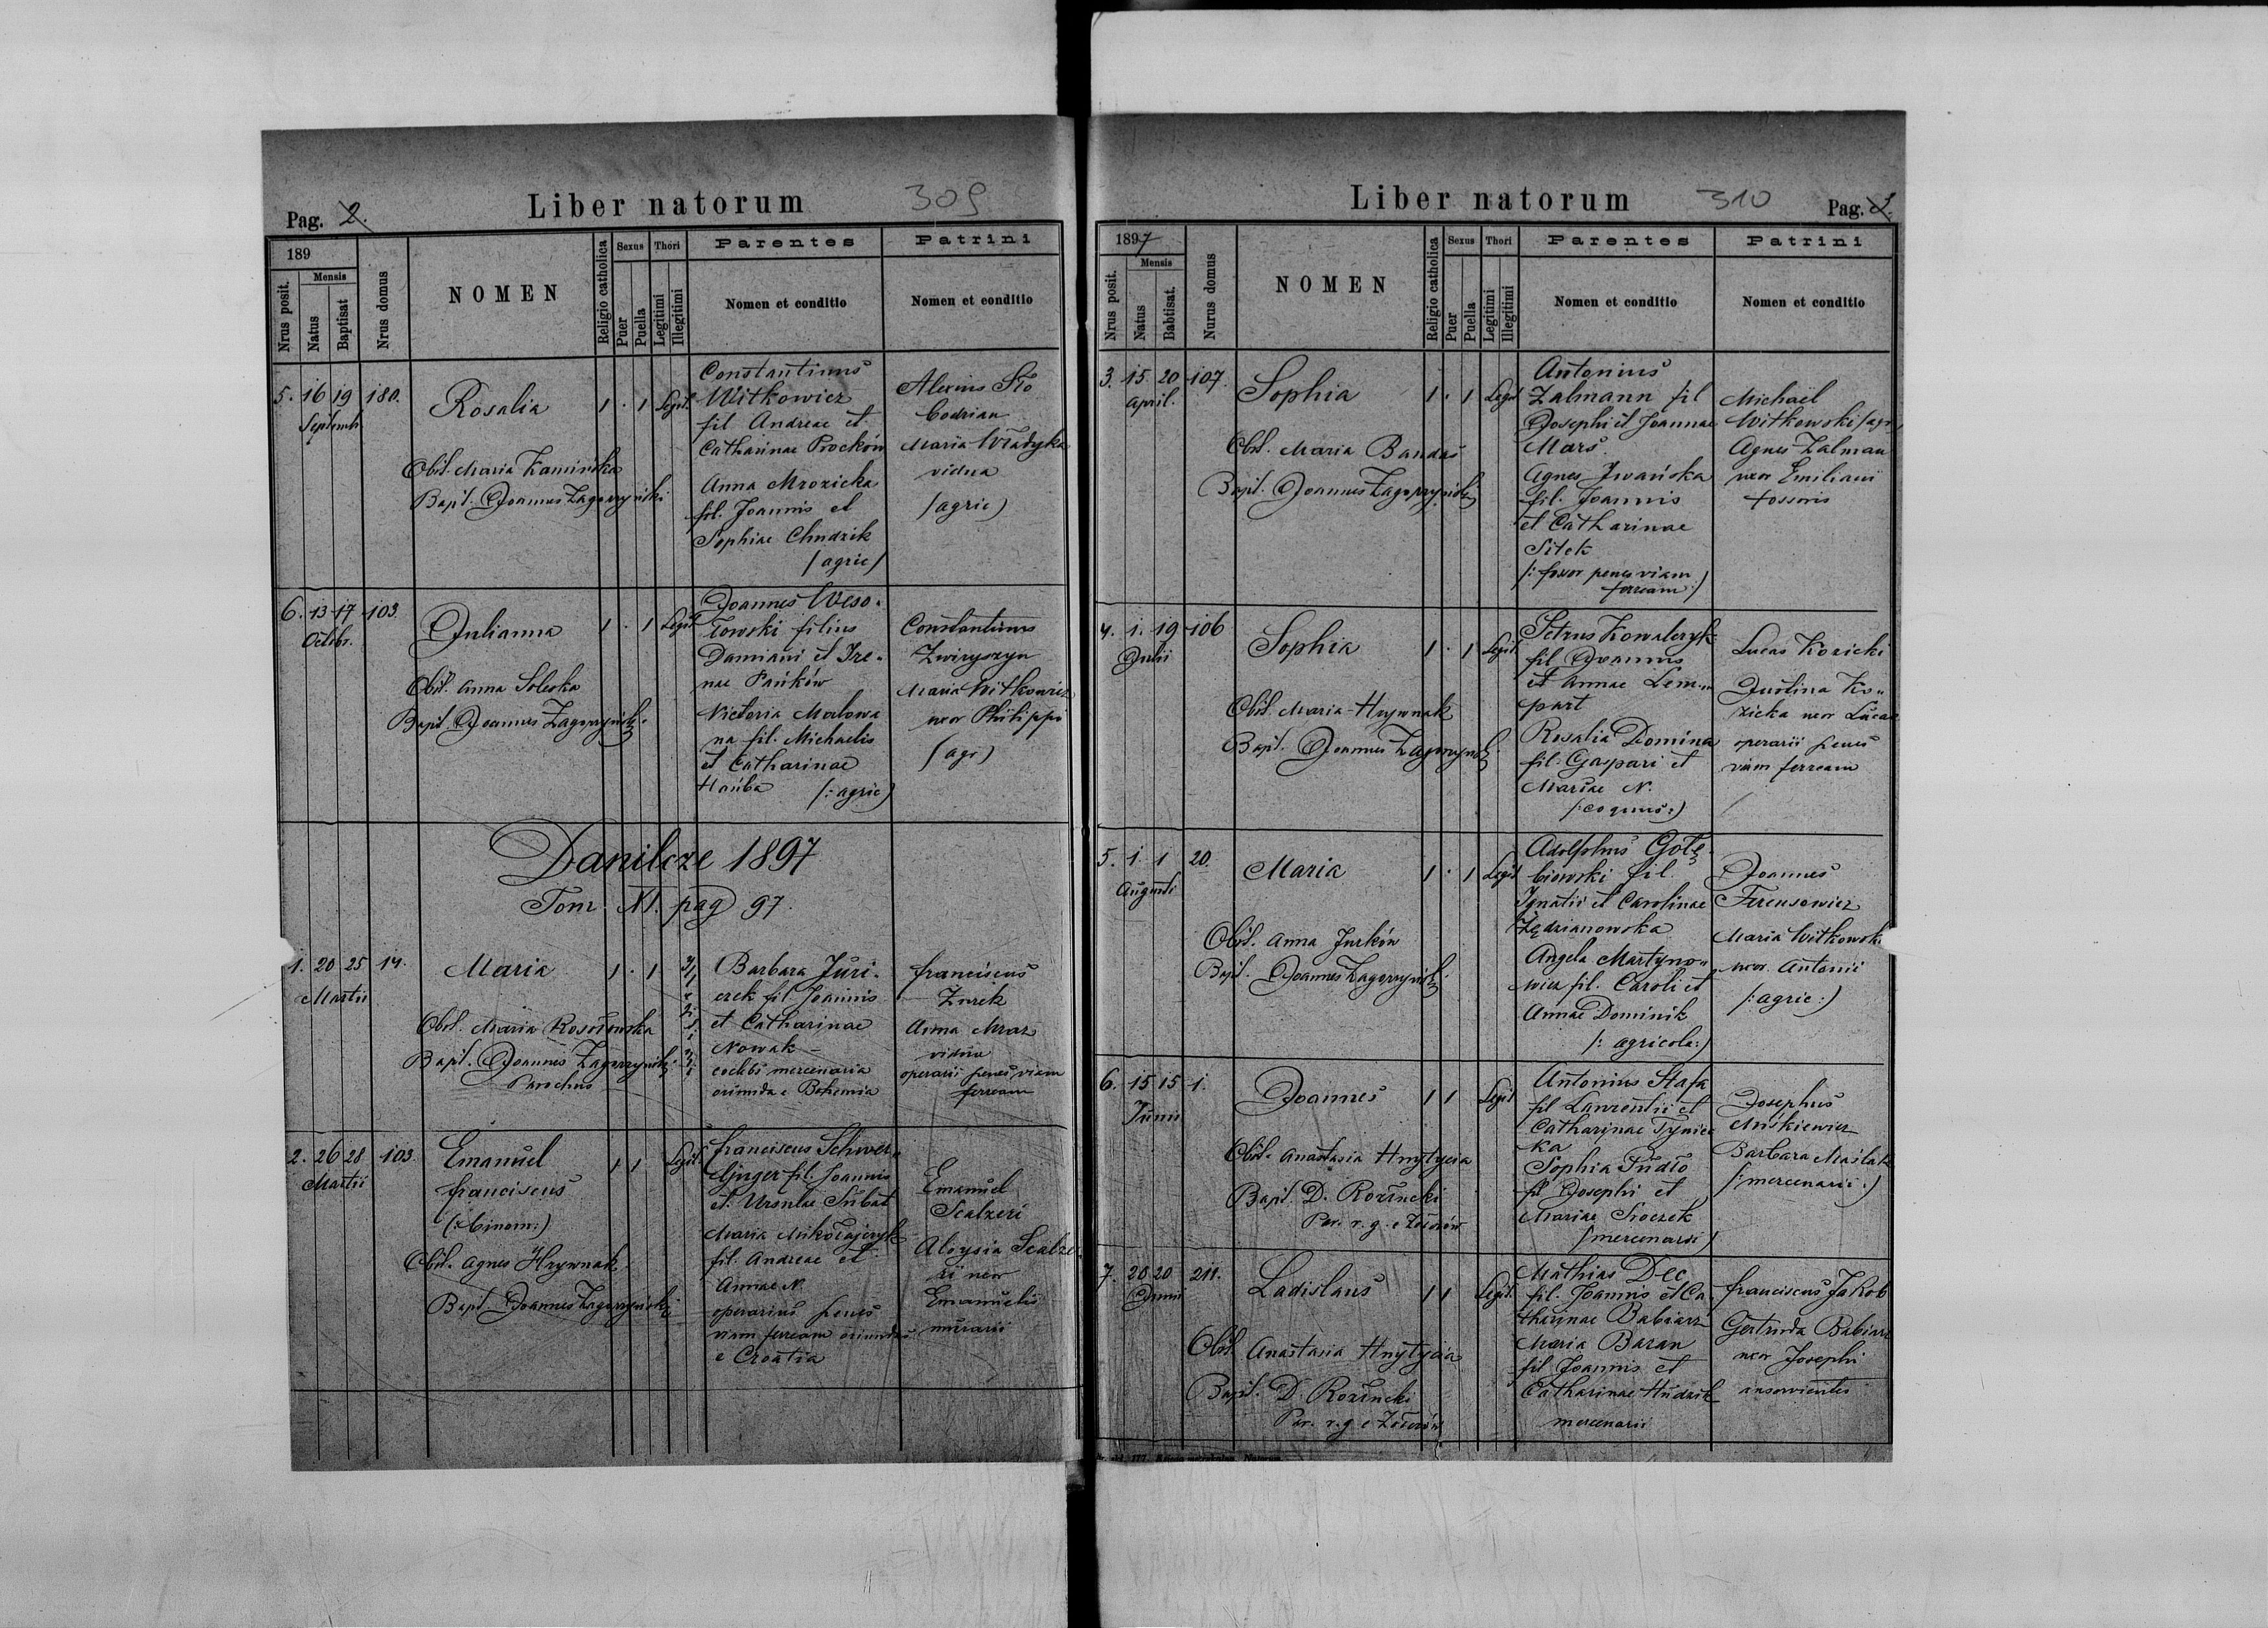 Pag. 2.
Liber natorum
309
189
Nrus posit.
Mensis
Natus
Baptisat
Nrus domus
NOMEN
Religio catholica
Sexus
Puer
Puella
Thori
Legitimi
Illegitimi
Parentes
Nomen et conditio
Patrini
Nomen et conditio
5. 16 19 180.
Septemb
Rosalia
1 . 1 Legit.
Obst. Maria Kamińska
Bapt. Joannes Zagorzyński
Constantinus
Witkowicz
fil Andreae et
Catharinae Procków
Anna Mrozicka
fil. Joannis et
Sophiae Chudzik
/agric/
Alexius Sło
bodzian
Maria Władyka
vidua
/agric)
6. 13 17 103
Octobr.
Julianna
1 . 1 Legit
Obst. Anna Soleska
Bapt. Joannes Zagorzyński
Joannes Weso-
łowski filius
Damiani et Ire-
nae Pańków
Victoria Malowa
na fil. Michaelis
et Catharinae
Hańba (:agric)
Constantinus
Zwiryszyn
Maria Witkowicz
uxor Philippi
(agr)
Danilcze 1897
Tom XI. pag 97.
1. 20 25 14.
Martii
Maria
1 . 1
Obst. Maria Rosołowska
Bapt. Joannes Zagorzyński
Parochus
Barbara Juri-
czek fil Joannis
et Catharinae
Nowak -
coelebs mercenaria
oriunda e Bohemia
Franciscus
Zurek
Anna Mraz
vidua
operarii penes viam
ferream
2. 26 28 103
Martii
Emanuel
Franciscus
(:binom:)
1 1 Legit.
Obst. Agnes Hrywnak
Bapt. Joannes Zagorzyński
Franciscus Schwer-
fil. Joannis
et Ursulae Subat
Maria Mikołajczyk
fil. Andreae et
Annae N.
operarius penes
viam ferream oriundus
e Croatia
Emanuel
Scalzeri
Aloysia Scalze-
ri uxor
Emanuelis
murarii
Liber natorum
310
Pag. 3.
1897
Nrus posit.
Mensis
Natus
Babtisat.
Nurus domus
NOMEN
Religio catholica
Sexus
Puer
Puella
Thori
Legitimi
Illegitimi
Parentes
Nomen et conditio
Patrini
Nomen et conditio
3. 15 20 107.
April.
Sophia
1 . 1 Legit
Obst. Maria Bandas
Bapt. Joannes Zagorzyński
Antonius
Zalmann fil
Josephi et Joannae
Mars
Agnes Iwańska
fil. Joannis
et Catharinae
Sitek
(: fossor penes viam
ferream)
Michael
Witkowski /agr/
Agnes Zalman
uxor Emiliani
fossoris
4. 1. 19 106
Julii
Sophia
1 . 1 Legit
Obst. Maria Hrywnak
Bapt. Joannes Zagorzyński
Petrus Kowalczyk
fil Joannis
et Annae Lem-
part
Rosalia Domina
fil. Gaspari et
Mariae N.
(:coquus:)
Lucas Kozicki
Justina Ko-
zicka uxor Lucae
operarii penes
viam ferream
5. 1 1 20.
Augusti
Maria
1 . 1 Legit
Obst. Anna Jurków
Bapt. Joannes Zagorzyński
Adolphus Gołę-
biowski fil.
Ignatii et Carolinae
Żędzianowska
Angela Martyno-
wicz fil. Caroli et
Annae Dominik
(: agricola:)
Joannes
Ferensowicz
Maria Witkowski
uxor Antonii
(:agric:)
6. 15 15 1.
Junii
Joannes
1 1 Legit
Obst. Anastasia Hnytycia
Bapt. D. Rozłucki
Par. r. g. e
Antonius Stafa
fil Laurentii et
Catharinae Tyniec
ka
Sophia Pudło
fil Josephi et
Mariae Sroczek
(mercenarii)
Josephus
Miśkiewicz
Barbara Maślak
(:mercenarii:)
7. 20 20 211.
Junii
Ladislaus
1 1 Legit.
Obst Anastasia Hnytycia
Bapt. D. Rozłucki
Par. r. g e
Mathias Dec
fil. Joannis et Ca
tharinae Babiarz
Maria Baran
fil Joannis et
Catharinae Hudzik
mercenarii
Franciscus Jakob
Gertruda Babiarz
uxor Josephi
inservientis